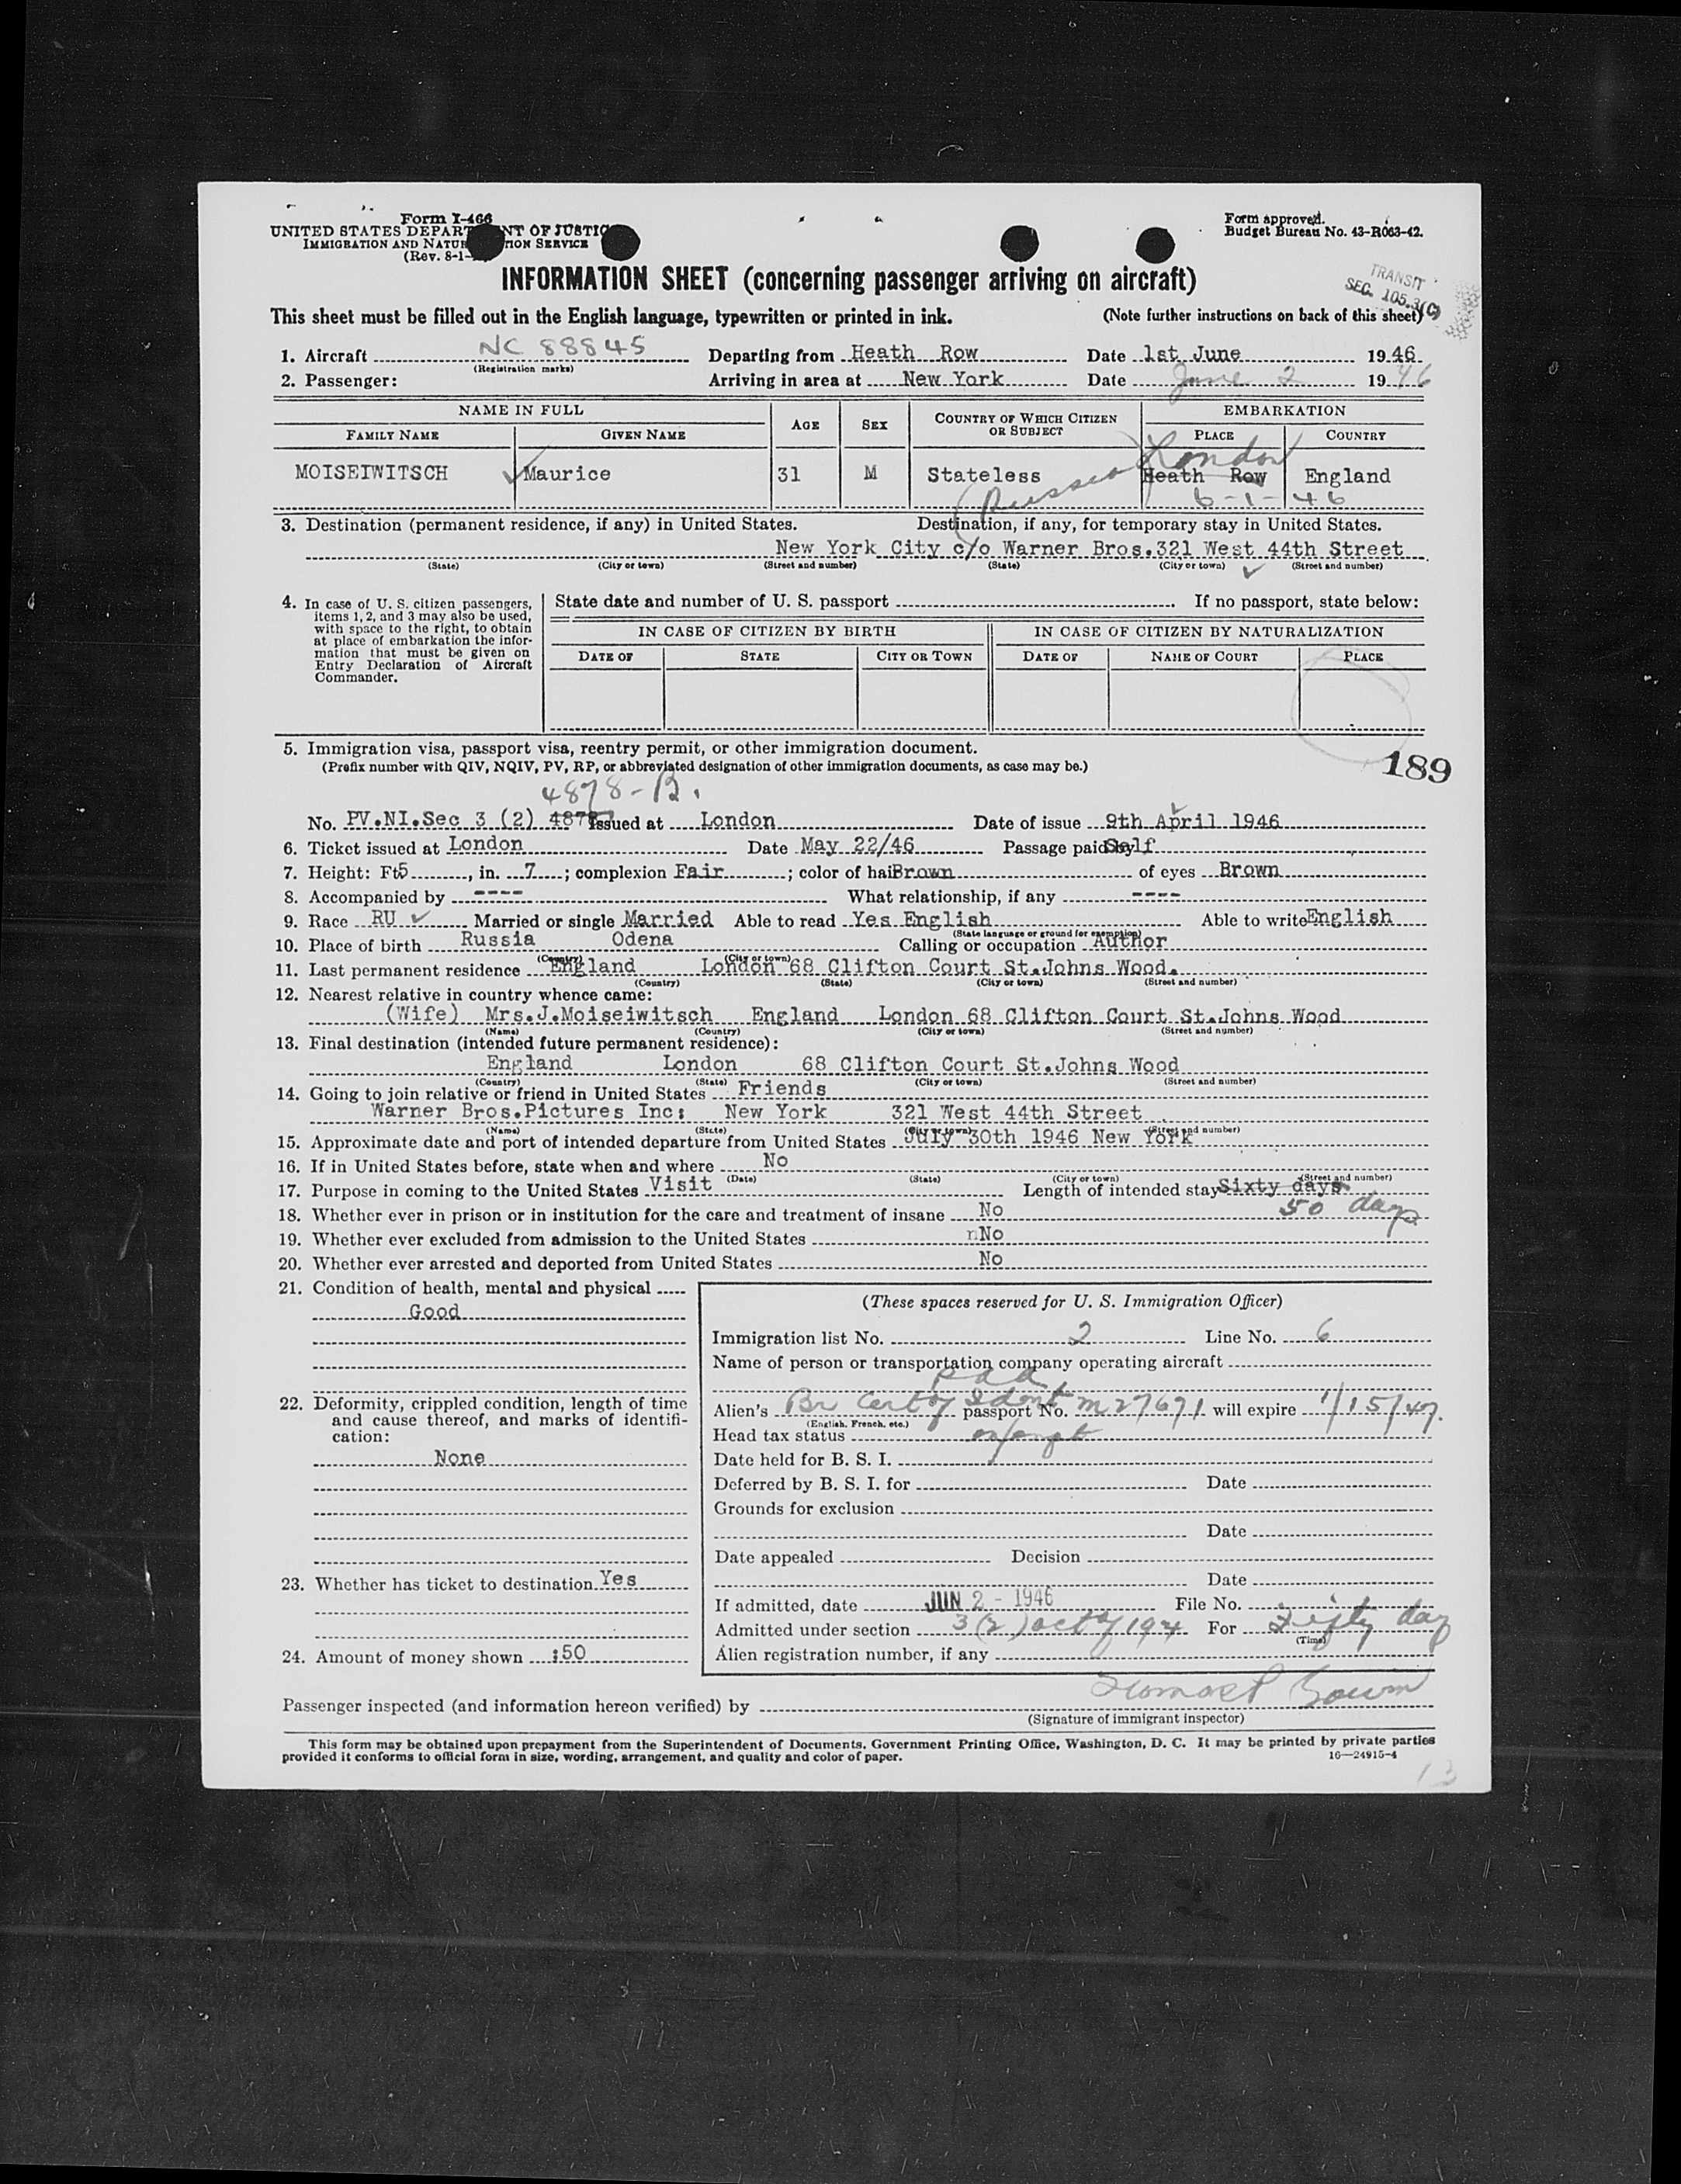 Form I-466
UNITED STATES DEPARTMENT OF JUSTICE
IMMIGRATION AND NATURALIZATION SERVICE
(Rev. 8-1-
Form approved.
Budget Bureau No. 43-R063-42.
INFORMATION SHEET (concerning passenger arriving on aircraft)
TRANSIT
SEC. 105.3(C)
This sheet must be filled out in the English language, typewritten or printed in ink. (Note further instructions on back of this sheet)
1. Aircraft NC 88845 Departing from Heath Row Date 1st June 1946
(Registration marks)
2. Passenger: Arriving in area at New York Date June 2 1946
NAME IN FULL AGE SEX COUNTRY OF WHICH CITIZEN OR SUBJECT EMBARKATION
FAMILY NAME GIVEN NAME PLACE COUNTRY
London
MOISEIWITSCH Maurice 31 M Stateless Heath Row England
(Russia) 6-1-46
3. Destination (permanent residence, if any) in United States. Destination, if any, for temporary stay in United States.
New York City c/o Warner Bros.321 West 44th Street
(State) (City or town) (Street and number) (State) (City or town) (Street and number)
4. In case of U. S. citizen passengers, items 1, 2, and 3 may also be used, with space to the right, to obtain at place of embarkation the information that must be given on Entry Declaration of Aircraft Commander.
State date and number of U. S. passport If no passport, state below:
IN CASE OF CITIZEN BY BIRTH IN CASE OF CITIZEN BY NATURALIZATION
DATE OF STATE CITY OR TOWN DATE OF NAME OF COURT PLACE
5. Immigration visa, passport visa, reentry permit, or other immigration document.
(Prefix number with QIV, NQIV, PV, RP, or abbreviated designation of other immigration documents, as case may be.)
189
4878-B.
No. PV.NI.Sec 3 (2) 4878 Issued at London Date of issue 9th April 1946
6. Ticket issued at London Date May 22/46 Passage paid by Self
7. Height: Ft 5, in. 7; complexion Fair; color of hair Brown of eyes Brown
8. Accompanied by ---- What relationship, if any ----
9. Race RU Married or single Married Able to read Yes English Able to write English
(State language or ground for exemption)
10. Place of birth Russia Odena Calling or occupation Author
(Country) (City or town)
11. Last permanent residence England London 68 Clifton Court St.Johns Wood.
(Country) (State) (City or town) (Street and number)
12. Nearest relative in country whence came:
(Wife) Mrs.J.Moiseiwitsch England London 68 Clifton Court St.Johns Wood
(Name) (Country) (City or town) (Street and number)
13. Final destination (intended future permanent residence):
England London 68 Clifton Court St.Johns Wood
(Country) (State) (City or town) (Street and number)
14. Going to join relative or friend in United States Friends
Warner Bros.Pictures Inc: New York 321 West 44th Street
(Name) (State) (City or town) (Street and number)
15. Approximate date and port of intended departure from United States July 30th 1946 New York
16. If in United States before, state when and where No
(Date) (State) (City or town) (Street and number)
17. Purpose in coming to the United States Visit Length of intended stay Sixty days
50 days
18. Whether ever in prison or in institution for the care and treatment of insane No
19. Whether ever excluded from admission to the United States nNo
20. Whether ever arrested and deported from United States No
21. Condition of health, mental and physical
Good
22. Deformity, crippled condition, length of time and cause thereof, and marks of identification:
None
23. Whether has ticket to destination Yes
24. Amount of money shown :50
(These spaces reserved for U. S. Immigration Officer)
Immigration list No. 2 Line No. 6
Name of person or transportation company operating aircraft
PAA
Alien's Br Cert of Ident passport No. M27671 will expire 1/15/47.
(English, French, etc.)
Head tax status exempt
Date held for B. S. I.
Deferred by B. S. I. for Date
Grounds for exclusion
Date
Date appealed Decision
Date
If admitted, date JUN 2 - 1946 File No.
Admitted under section 3(2) act of 1924 For Fifty day
(Time)
Alien registration number, if any
Passenger inspected (and information hereon verified) by
(Signature of immigrant inspector)
This form may be obtained upon prepayment from the Superintendent of Documents, Government Printing Office, Washington, D. C. It may be printed by private parties
provided it conforms to official form in size, wording, arrangement, and quality and color of paper. 16—24915-4
13